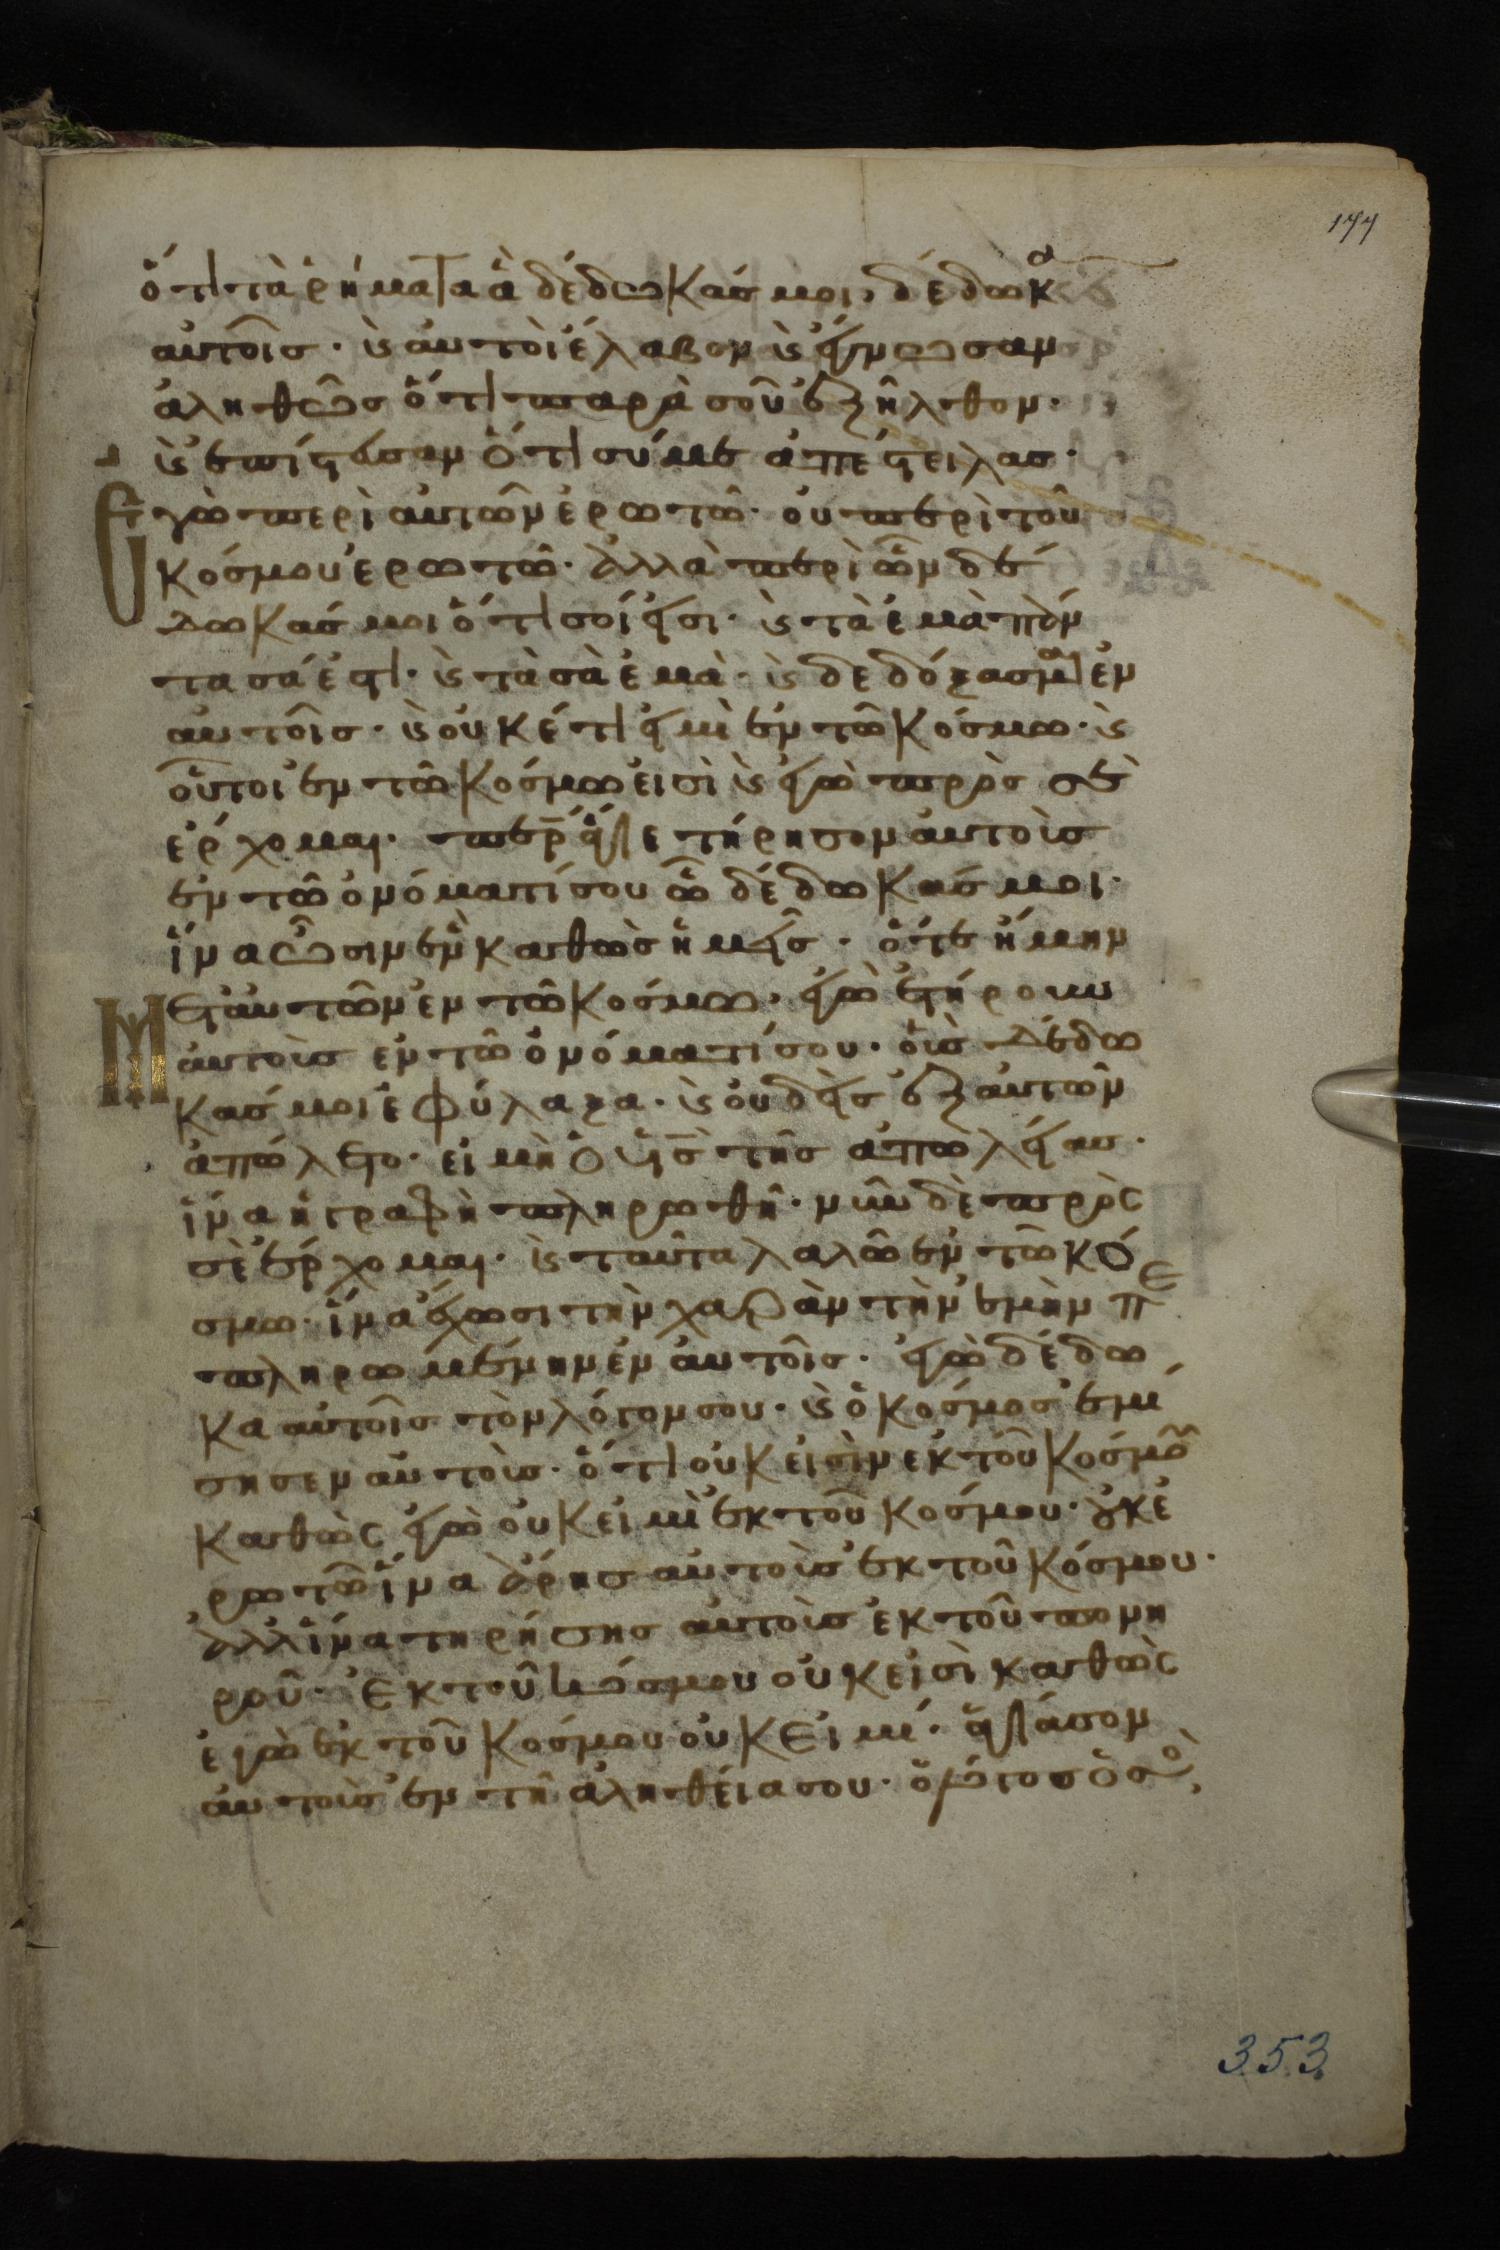 177
ὅτι τὰ ῥήματα ἃ δέδωκάς μοι, δέδωκα
αὐτοῖς· κ̀ αὐτοὶ ἔλαβον κ̀ ἔγνωσαν
ἀληθῶς ὅτι παρὰ σοῦ ἐξῆλθον·
κ̀ ἐπίστευσαν ὅτι σύ με ἀπέστειλας·
Ἐγὼ περὶ αὐτῶν ἐρωτῶ· οὐ περὶ τοῦ
κόσμου ἐρωτῶ· ἀλλὰ περὶ ὧν δέ
δωκάς μοι ὅτι σοί εἰσι· κ̀ τὰ ἐμὰ πάν
τα σά ἐστι· κ̀ τὰ σὰ ἐμὰ· κ̀ δεδόξασμαι ἐν
αὐτοῖς· κ̀ οὐκέτι εἰμὶ ἐν τῶ κόσμω· κ̀
οὗτοι ἐν τῶ κόσμω εισὶ κ̀ ἐγὼ πρὸς σὲ
ἔρχομαι· περ ἅγιε τήρησον αὐτοὺς
ἐν τῶ ὀνόματί σου ὧ δέδωκάς μοι·
ἵνα ὦσιν ἓν καθὼς ἡμεῖς· ὅτε ἤμην
Μετ αὐτῶν ἐν τῶ κόσμω· ἐγὼ ἐτήρουν
αὐτοὺς ἐν τῶ ὀνόματί σου· οὓς δέδω
κάς μοι ἐφύλαξα· κ̀ οὐδεὶς ἐξ αὐτῶν
ἀπώλετο· εἰ μὴ ὁ υἱς τῆς ἀπωλείας·
ἵνα ἡ γραφὴ πληρωθῆ· νῦν δὲ πρὸς
σὲ ἔρχομαι· κ̀ ταῦτα λαλῶ ἐν τῶ κό
σμω· ἵνα ἔχωσι τὴν χαρὰν τὴν ἐμὴν πε
πληρωμένην ἐν αὐτοῖς· ἐγὼ δέδω
κα αὐτοῖς τὸν λόγον σου· κ̀ ὁ κόσμος ἐμί
σησεν αὐτοὺς· ὅτι οὐκ εἰσὶν ἐκ τοῦ κόσμου
καθὼς ἐγὼ οὐκ εἰμὶ ἐκ τοῦ κόσμου· οὐκ ἐ
ρωτῶ ἵνα ἄρης αὐτοὺς ἐκ τοῦ κόσμου·
ἀλλ ἵνα τηρήσης αὐτοὺς ἐκ τοῦ πονη
ροῦ· Ἐκ τοῦ κόσμου οὐκ εἰσὶ καθὼς
ἐγὼ ἐκ τοῦ κόσμου οὐκ εἰμί· ἁγίασον
αὐτοὺς ἐν τῆ ἀληθεία σου· ὁ λόγος ὁ σὸς
353